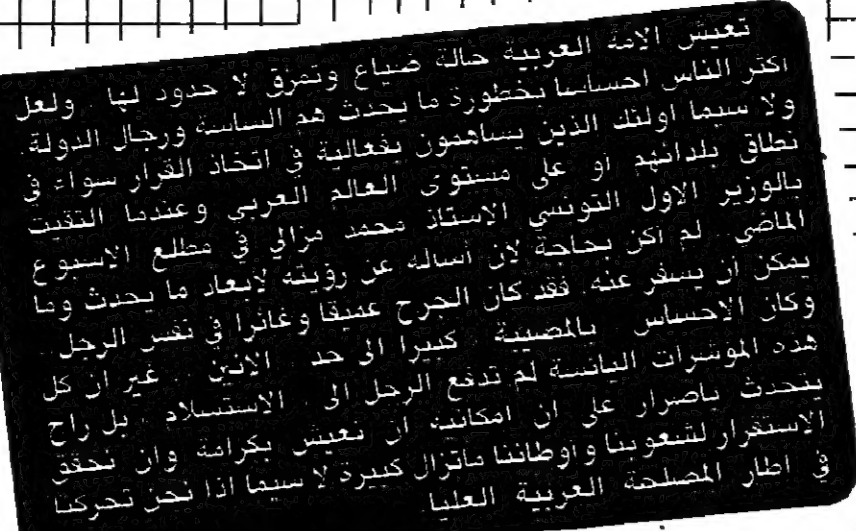 تعيش الامة العربية حالة ضياع وتمزق لا حدود لها . ولعل
اكثر الناس احساسا بخطورة ما يحدث هم الساسة ورجال الدولة .
ولا سيما اولئك الذين يساهمون بفعالية في اتخاذ القرار سواء في
نطاق بلدانهم او على مستوى العالم العربي وعندما التقيت
بالوزير الاول التونسي الاستاذ محمد مزالي في مطلع الاسبوع
الماضي . لم اكن بحاجة لان أساله عن رؤيته لابعاد ما يحدث وما
يمكن ان يسفر عنه. فقد كان الجرح عميقا وغائرا في نفس الرجل .
وكان الاحساس بالمصيبة كبيرا الى حد الانين . غير ان كل
هذه المؤشرات اليائسة لم تدفع الرجل الى الاستسلام . بل راح
يتحدث باصرار على ان امكانية ان نعيش بكرامة وان نحقق
الاستقرار لشعوبنا واوطاننا ماتزال كبيرة لا سيما اذا نحن تحركنا
في اطار المصلحة العربية العليا.